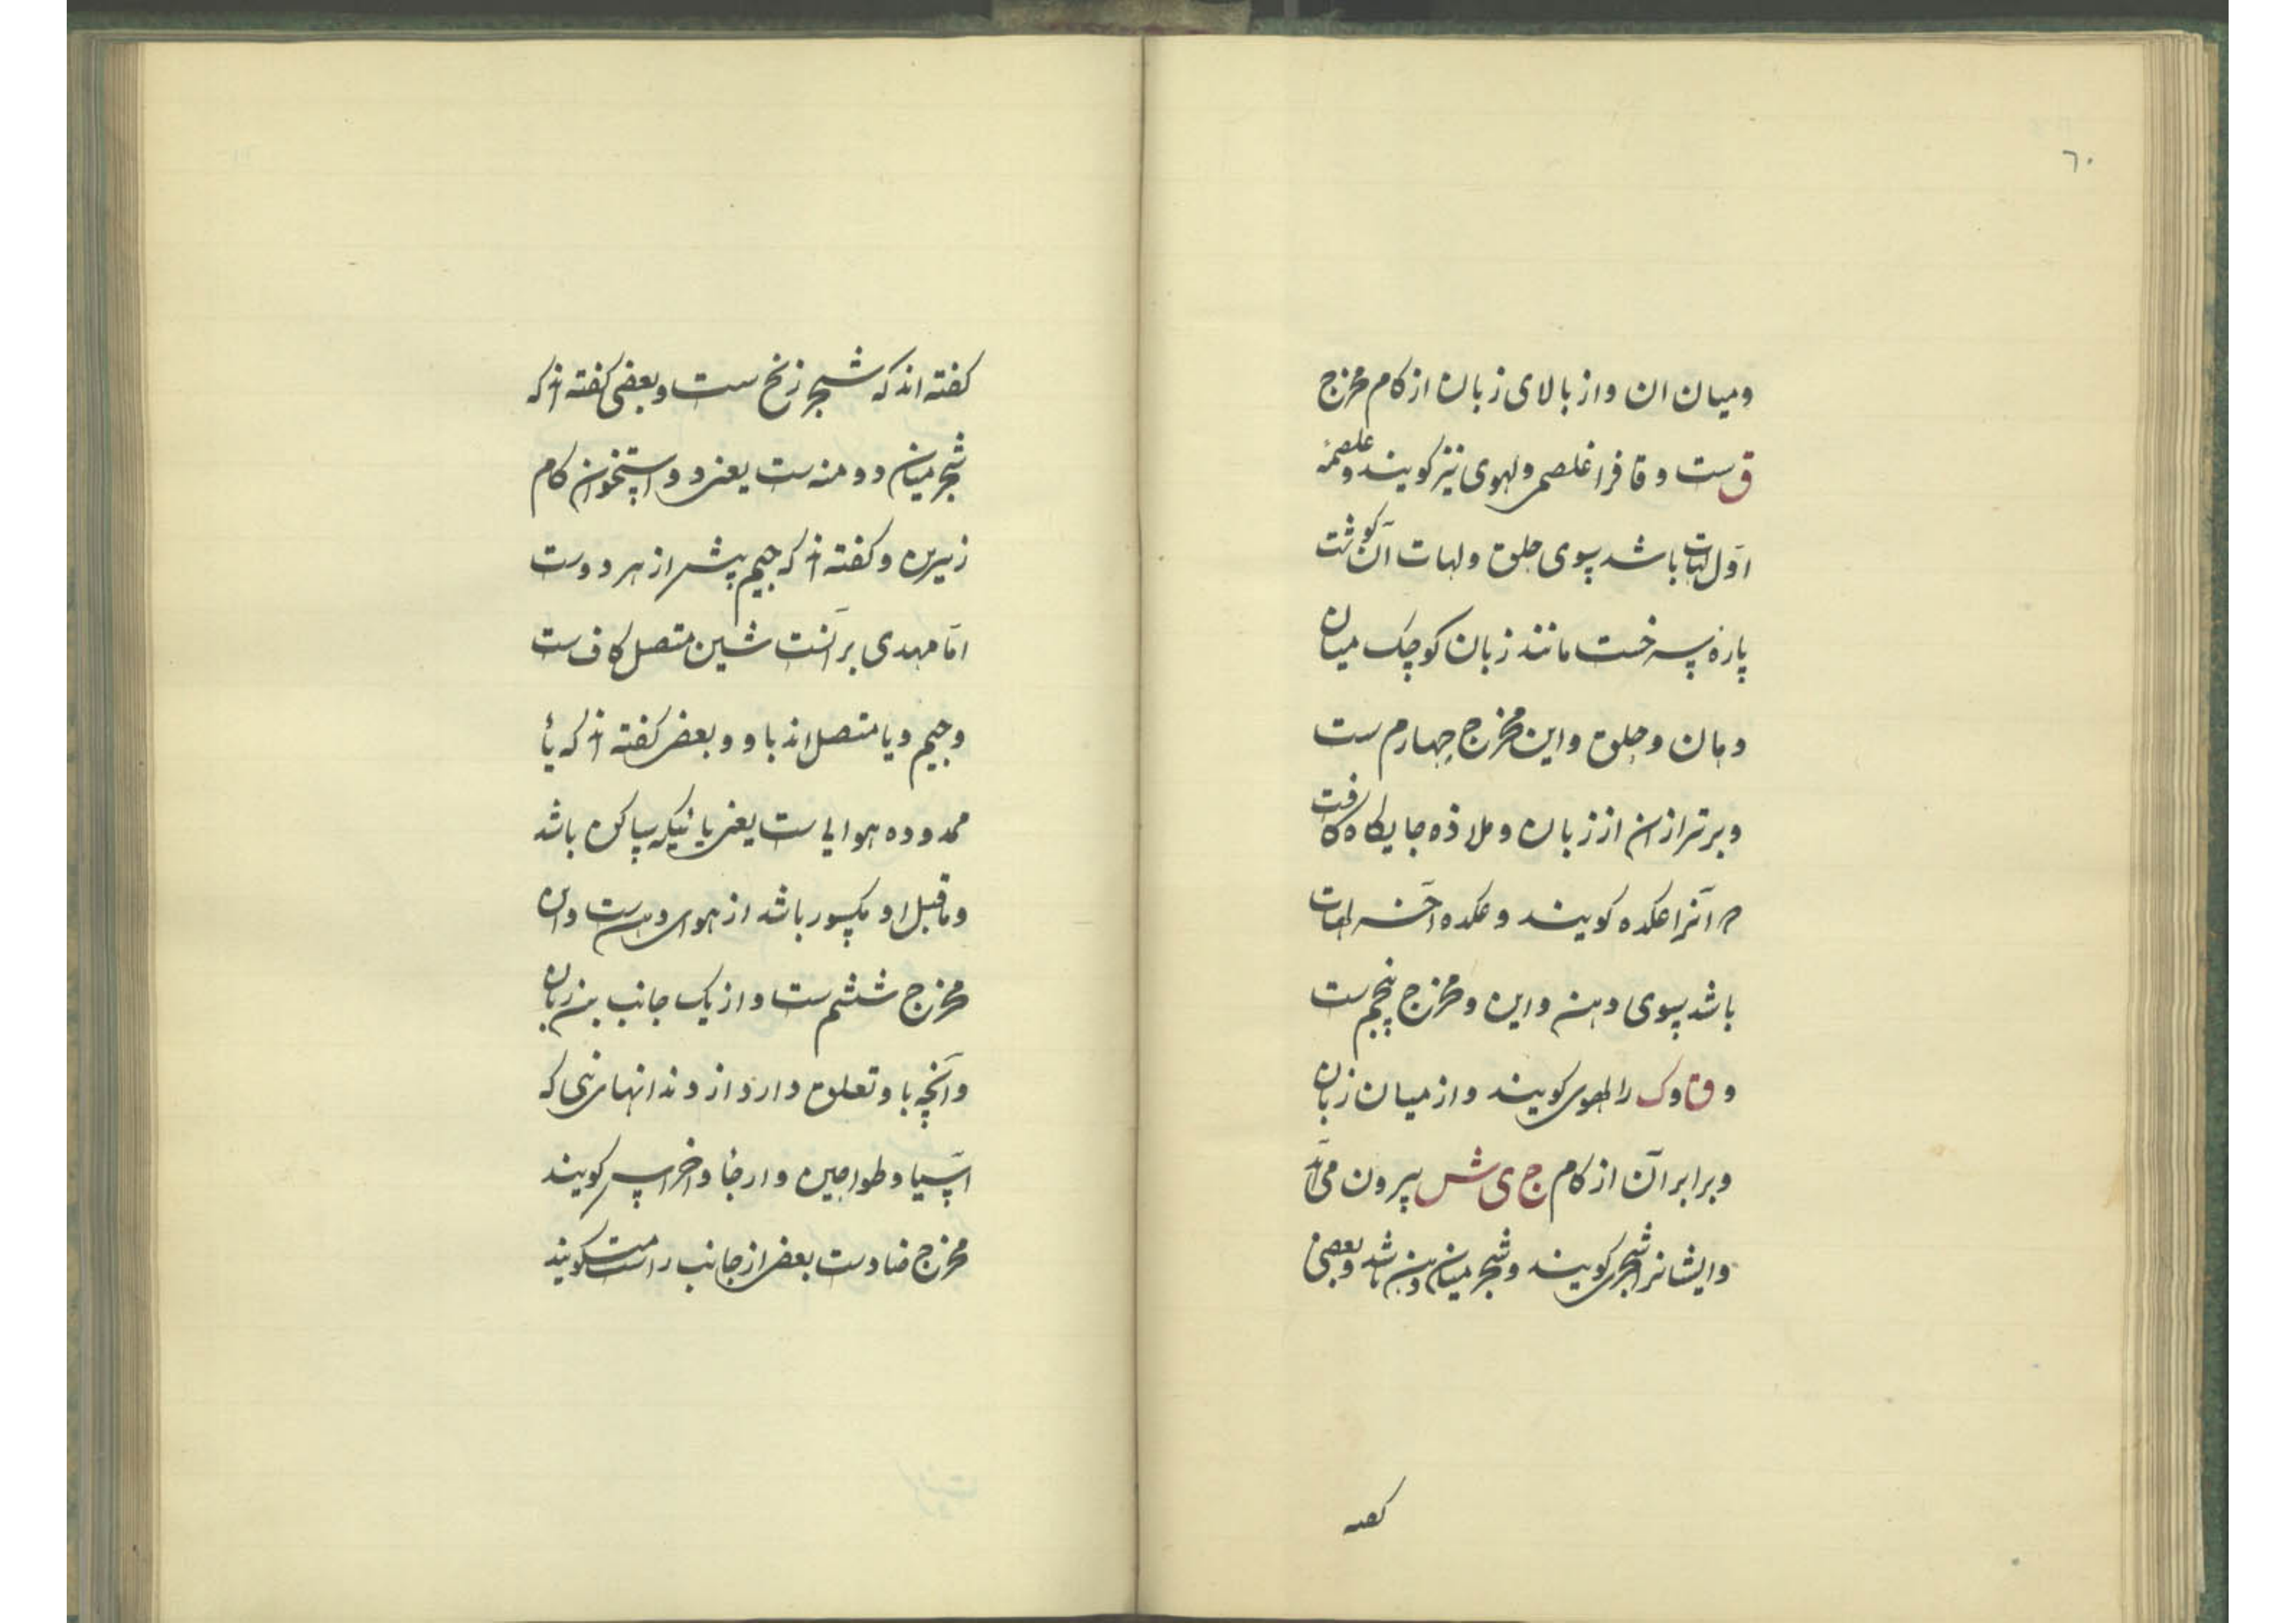 ٦٠
ومیان ان واز بالای زبان از کام مخرج
ق ست و قافرا غلصمی ولهوی نیز کویند وغلصمه
اوّل لهات باشد بسوی حلق ولهات آن کوشت
پارهٔ سرخست مانند زبان کوچک میان
دهان وحلق واین مخرج چهارم ست
وبرتر ازان از زبان وملاذه جایکاه کافت
آنرا عکده کویند وعکده آخر لهات
باشد بسوی دهن واین ومخرج پنجم ست
و ق و ک را لهوی کویند واز میان زبان
وبرابر آن از کام ج ی ش بیرون می آید
وایشانرا شجری کویند وشجر میان دهن باشد وبعضی
کفته
کفته اند که شجر زنخ ست وبعضی کفته اند که
شجر میان دو منه ست یعنی دو استخوان کام
زیرین وکفته اند که جیم پیشر از هر دوست
امّا مهدی برآنست شین متصل کاف ست
وجیم ویا متصل اند باو وبعضی کفته اند که یأ
ممدوده هوایی ست یعنی یا نیکه ساکن باشد
وماقبل او مکسور باشد از هوای دهن ست واین
مخرج ششم ست واز یک جانب بن زبان
وآنچه باو تعلق دارد از دندانهای نی که
اسیا وطواحین وارحا واضراس کویند
مخرج ضادست بعضی از جانب راست کویند